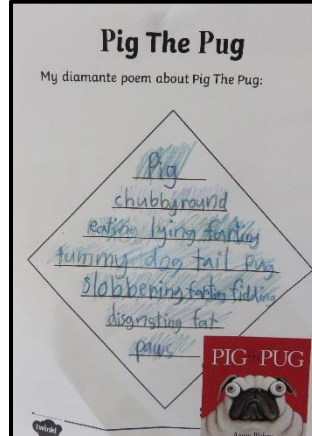 Pig The Pug
My diamante poem about Pig The Pug:
Pig
chubby round
eating lying farting
tummy dog tail pug
Slobbering farting
disgusting fat
paws
twinkl
PIG THE PUG
Aaron Blabey